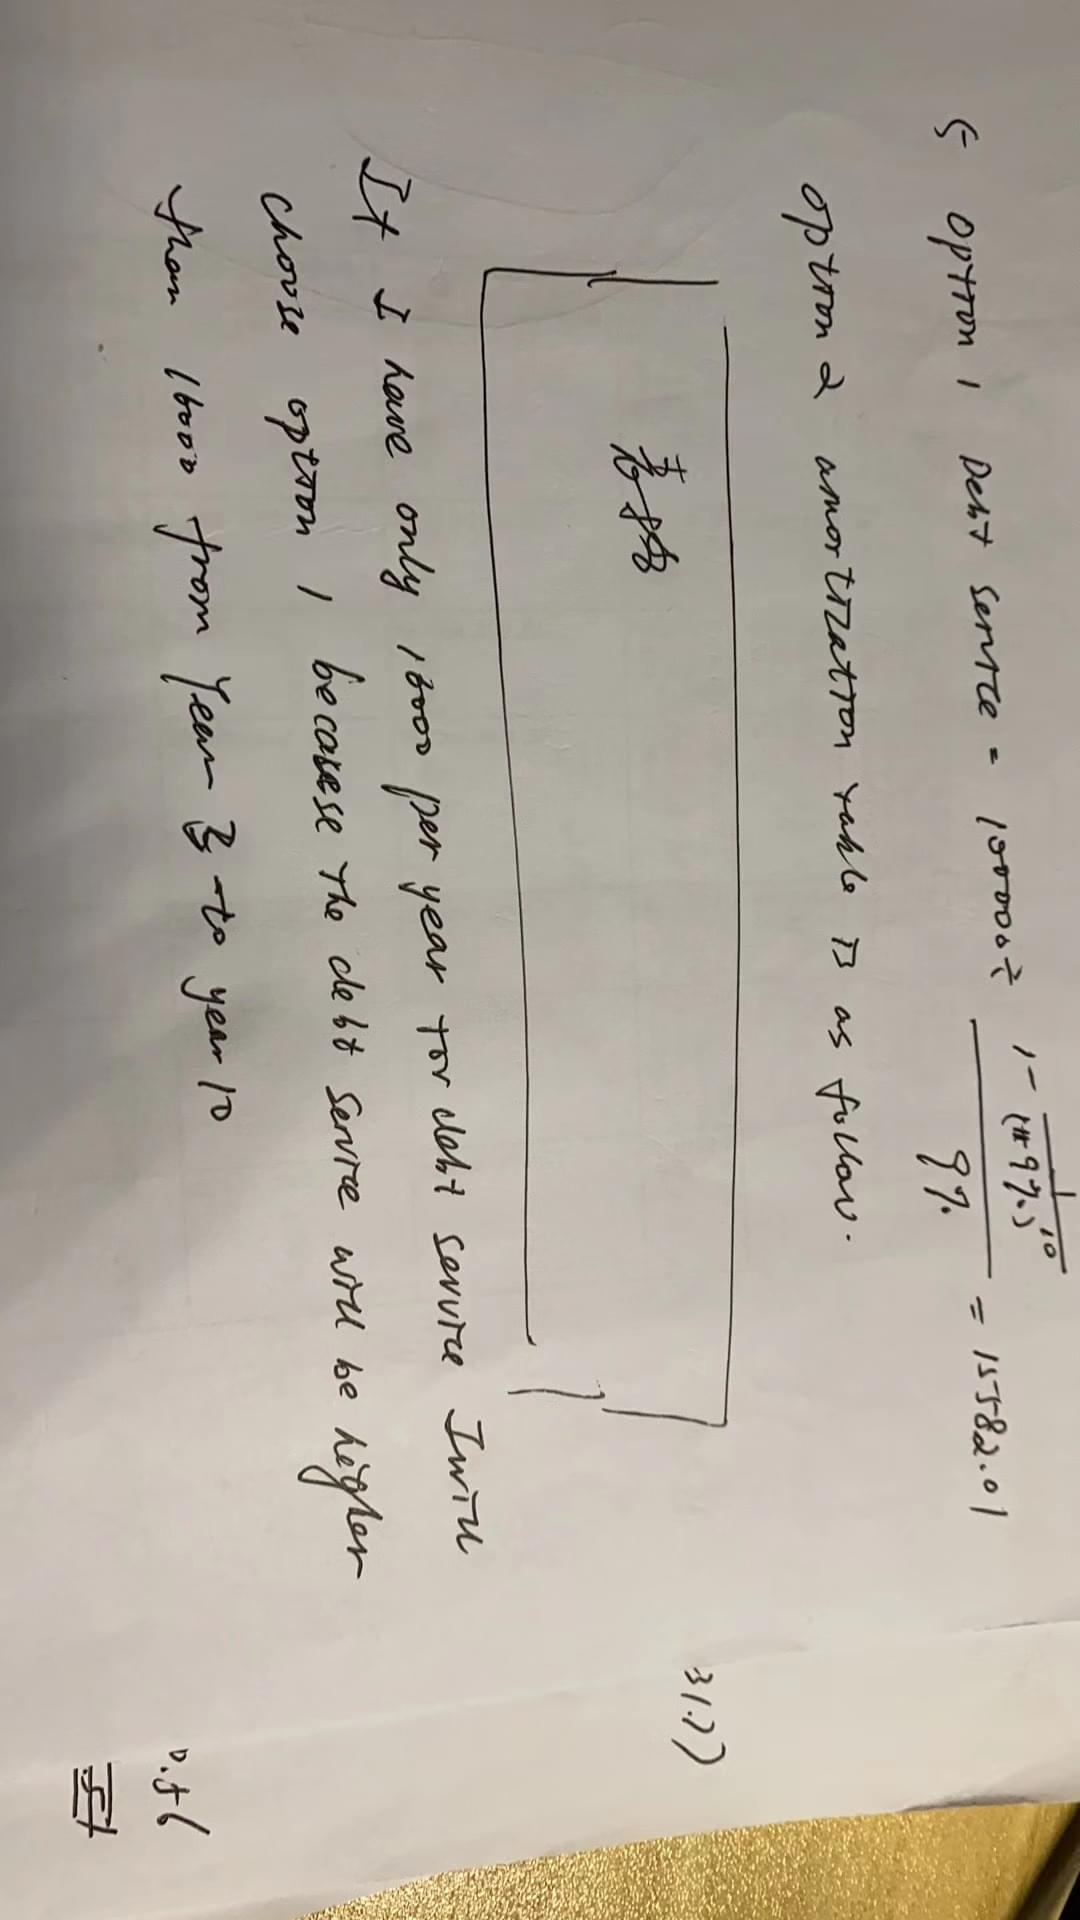 5 option 1 Debt service = 100000 ÷ 1 - 1/(1+9%)^10 / 9% = 15582.01
option 2 amortization table is as follow.
If I have only 16000 per year for debt service I will
choose option 1 because the debt service will be higher
than 16000 from year 3 to year 10